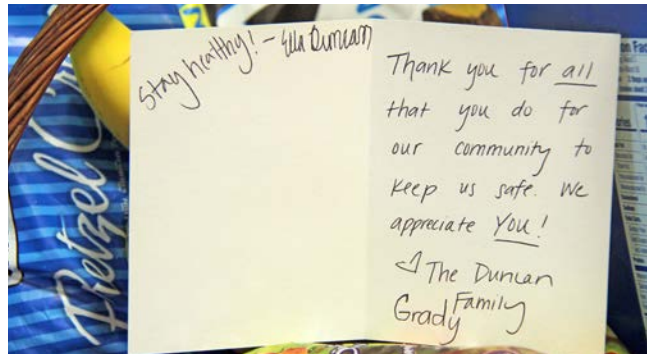 Stay healthy! - Ella Duncan
Thank you for all
that you do for
our community to
keep us safe. We
appreciate You!
♡ The Duncan
Grady Family
Pretzel